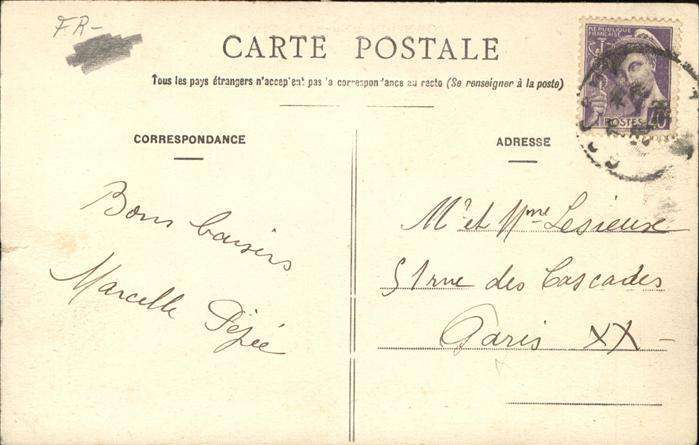 FR-
CARTE POSTALE
Tous les pays étrangers n'acceptent pas la correspondance au recto (Se renseigner à la poste)
CORRESPONDANCE
ADRESSE
REPUBLIQUE
FRANÇAISE
POSTES
40
Bons baisers
Marcelle
Mr et Mme Lesieux
51 rue des Cascades
Paris XX-